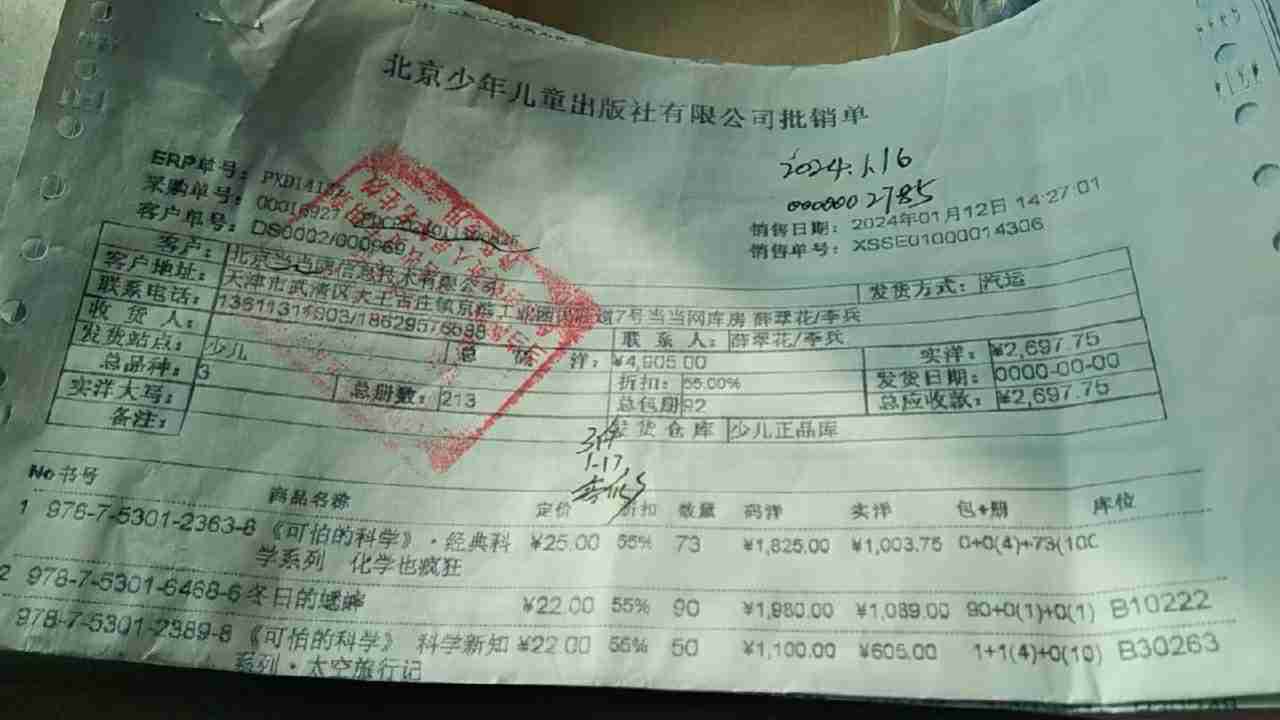 北京少年儿童出版社有限公司批销单
2024.1.16
0000002785
ERP单号：
采购单号：00016927
客户单号：DS0002/000969
销售日期：2024年01月12日 14:27:01
销售单号：XSSE01000014306
客户：北京当当网信息技术有限公司 发货方式：汽运
客户地址：天津市武清区大王古庄镇京滨工业园 7号当当网库房 薛翠花/李兵
联系电话：
收货人： 联系人：薛翠花/李兵 实洋：¥2,697.75
发货站点：少儿 总 码 洋：¥4,905.00 发货日期：0000-00-00
总品种：3 总册数：213 折扣：55.00% 总应收款：¥2,697.75
实洋大写： 总包册 92
备注： 发货仓库 少儿正品库
3件
1.17
No 书号 商品名称 定价 折扣 数量 码洋 实洋 包+册 库位
1 978-7-5301-2363-8 《可怕的科学》·经典科 ¥25.00 55% 73 ¥1,825.00 ¥1,003.75 0+0(4)+73(100
学系列 化学也疯狂
2 978-7-5301-6468-6 冬日的蟋蟀 ¥22.00 55% 90 ¥1,980.00 ¥1,089.00 90+0(1)+0(1) B10222
978-7-5301-2389-8 《可怕的科学》 科学新知 ¥22.00 55% 50 ¥1,100.00 ¥605.00 1+1(4)+0(10) B30263
系列·太空旅行记